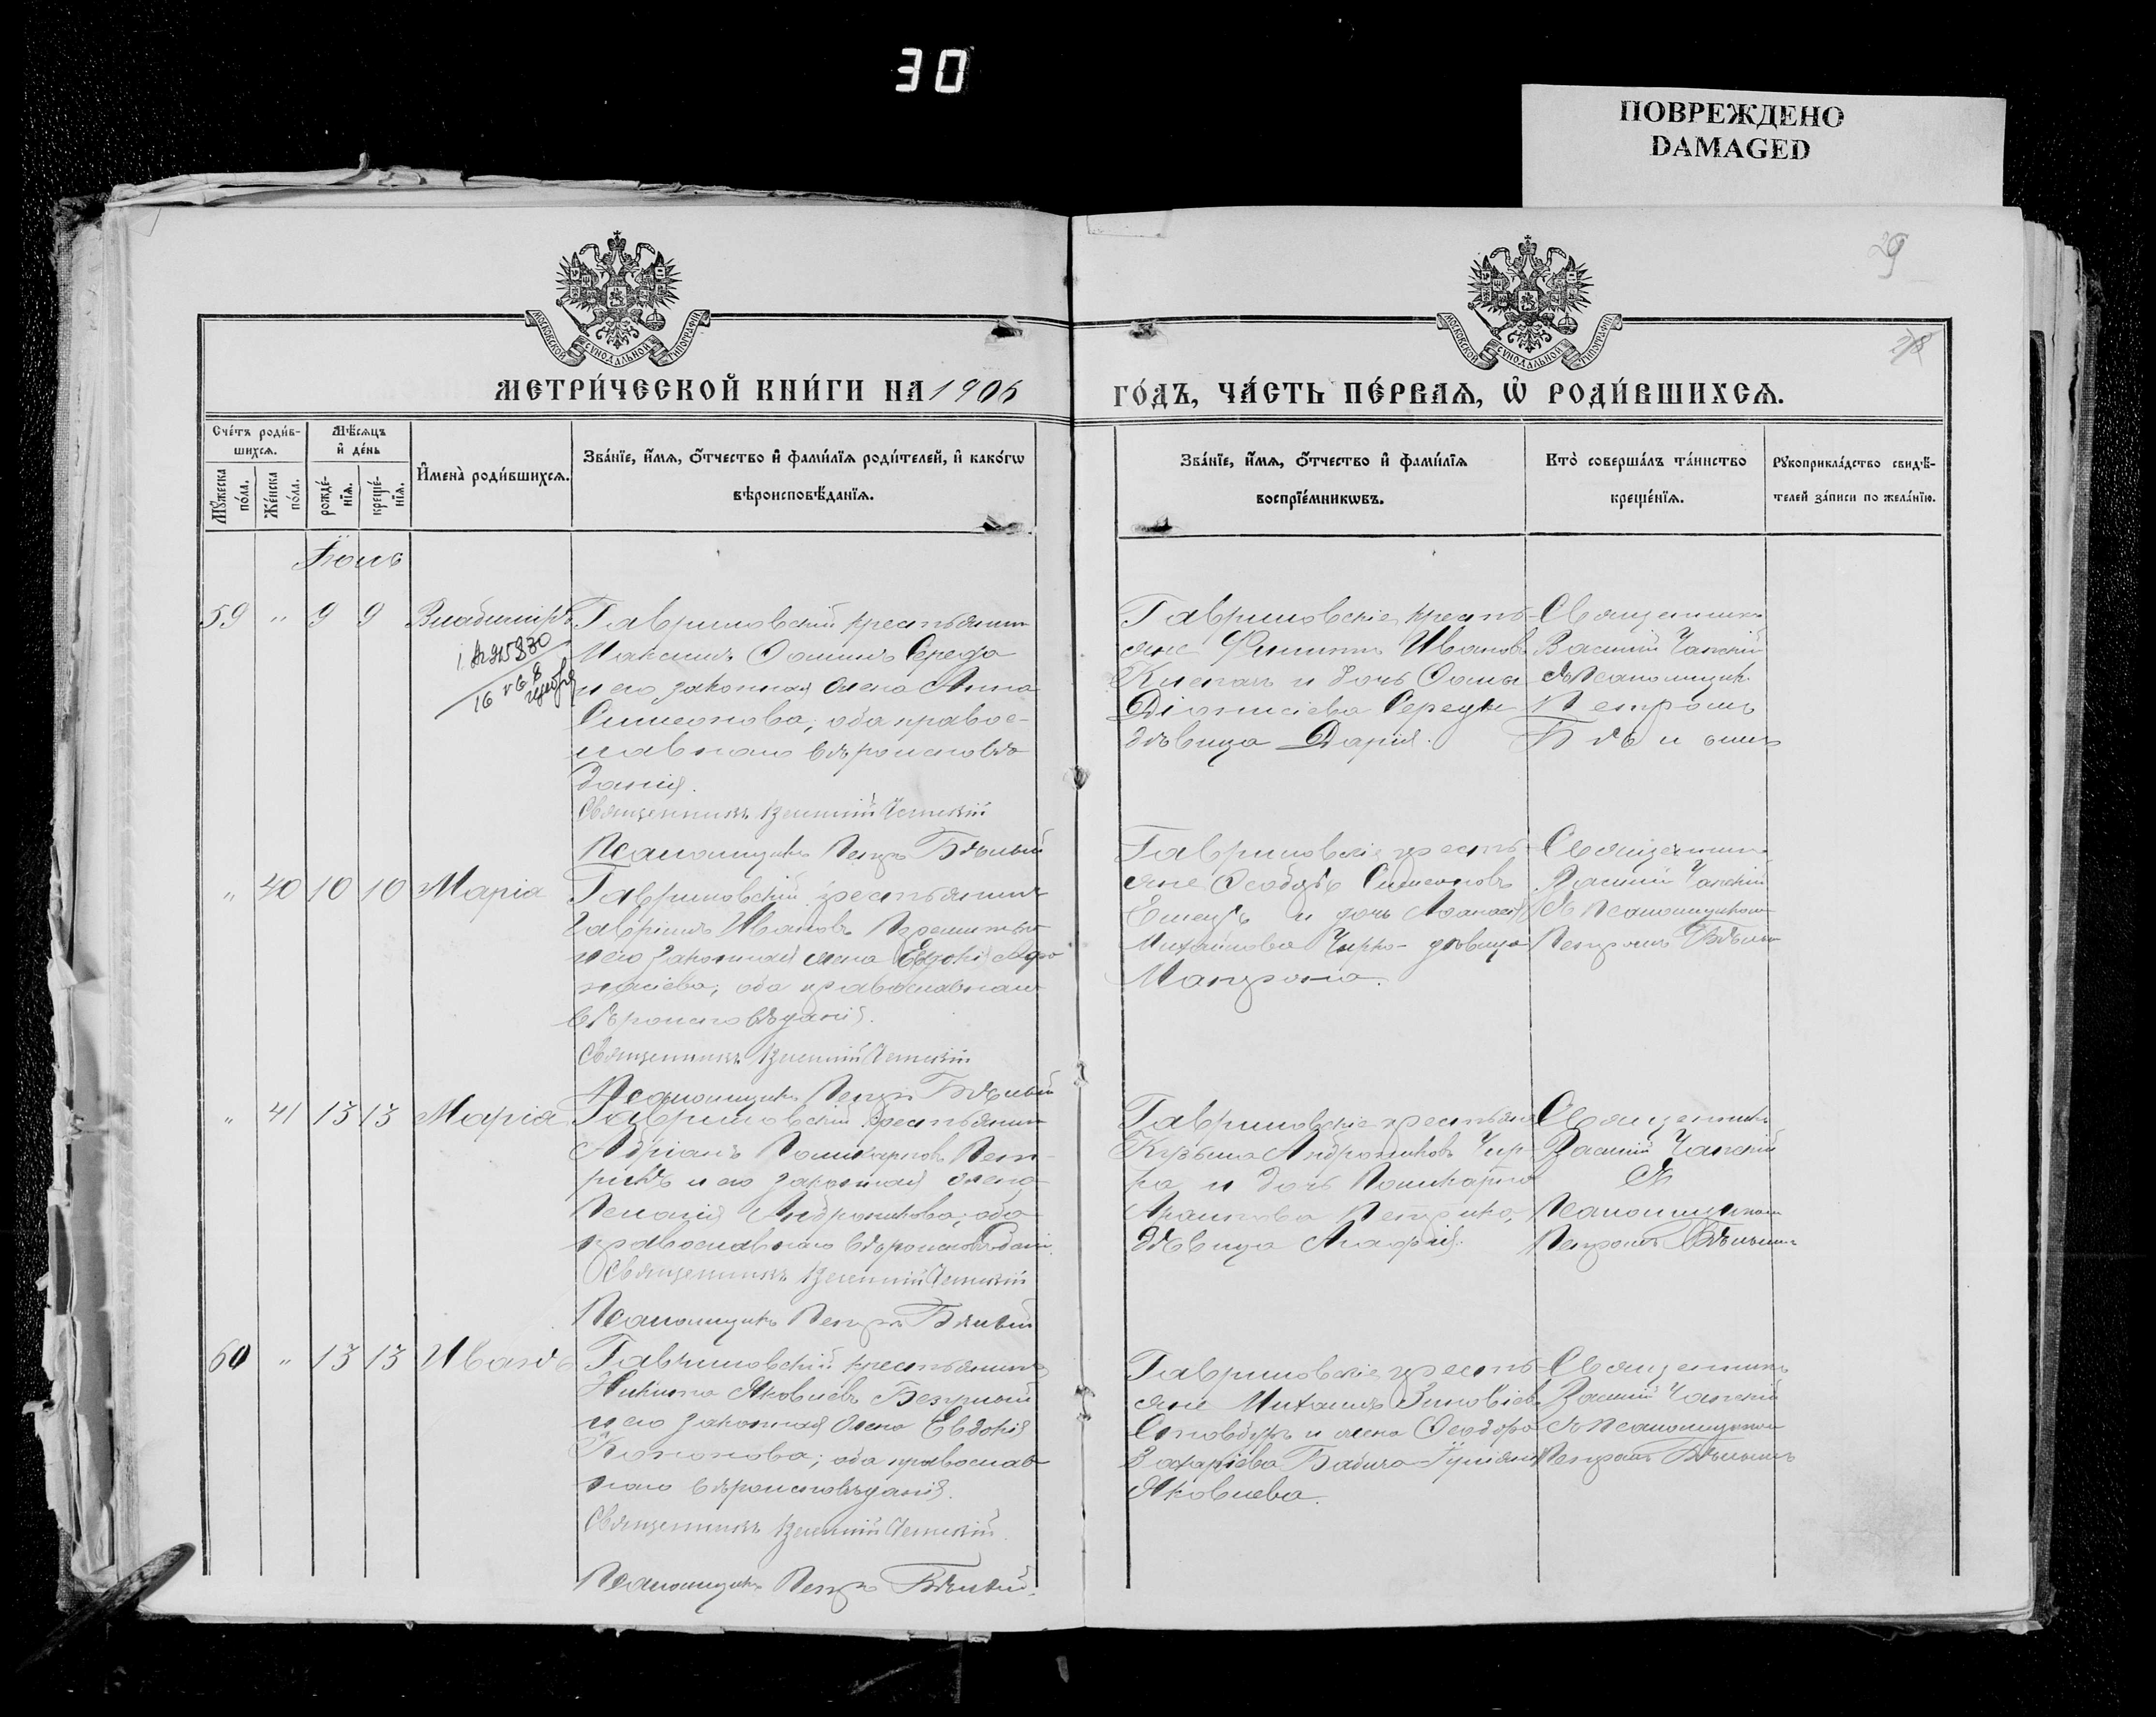 30
ПОВРЕЖДЕНО
DAMAGED
29
28
МОСКОВСКОЙ СѴНОДАЛЬНОЙ ТИПОГРАФІИ
МОСКОВСКОЙ СѴНОДАЛЬНОЙ ТИПОГРАФІИ
МЕТРИ́ЧЕСКОЙ КНИ́ГИ НА 1906
ГО́ДЪ, ЧА́СТЬ ПЕ́РВАѦ, Ѡ҆ РОДИ́ВШИХСѦ.
Сче́тъ роди́в-
шихсѧ.
Мꙋ́жеска
по́ла.
Же́нска
по́ла.
Мѣ́сѧцъ
и҆ де́нь
рожде́-
нїѧ.
креще́-
нїѧ.
И҆мена̀ роди́вшихсѧ.
Зва́нїе, и҆́мѧ, ѻ҆́тчество и҆ фамі́лїѧ роди́телей, и҆ како́гѡ
вѣроисповѣ́данїѧ.
Зва́нїе, и҆́мѧ, ѻ҆́тчество и҆ фамі́лїѧ
воспрїе́мникѡвъ.
Кто̀ соверша́лъ та́инство
креще́нїѧ.
Рꙋкоприкла́дство свидѣ́-
телей за́писи по жела́нїю.
Іюнь
59 " 9 9 Владиміръ
Гавриловскій крестьянинъ
Максимъ Ѳоминъ Середа
и его законная жена Анна
Симеонова, оба правос-
лавнаго вѣроисповѣ
данія.
Священникъ Василій Чапскій
Псаломщикъ Петръ Бѣлый
Гавриловскіе кресть-
яне Филиппъ Ивановъ
и дочь Ѳомы
Діонисіева Середы
дѣвица Дарія.
Священникъ
Василій Чапскій
съ Псаломщик.
Петромъ
Бѣлымъ
" 40 10 10 Марія
Гавриловскій крестьянинъ
Гавріилъ Ивановъ
и его законная жена Евдокія Аѳа
насіева, оба православнаго
вѣроисповѣданія.
Священникъ Василій Чапскій
Псаломщикъ Петръ Бѣлый
Гавриловскіе кресть-
яне Ѳеодоръ Симеоновъ
и дочь Аѳанасія
Михайлова Чирко дѣвица
Матрона.
Священникъ
Василій Чапскій
съ Псаломщикомъ
Петромъ Бѣлымъ
" 41 13 13 Марія
Гавриловскій крестьянинъ
Адріанъ Поликарповъ Пет-
рикъ и его законная жена
Пелагія Андроникова, оба
православнаго вѣроисповѣданія.
Священникъ Василій Чапскій
Псаломщикъ Петръ Бѣлый
Гавриловскіе крестьяне
Кузьма Андрониковъ Чир-
ка и дочь Поликарпа
Петрика,
дѣвица Агафія.
Священникъ
Василій Чапскій
съ
Псаломщикомъ
Петромъ Бѣлымъ
60 " 13 13 Иванъ
Гавриловскій крестьянинъ
Никита Яковлевъ
и его законная жена Евдокія
Кононова; оба православ
наго вѣроисповѣданія.
Священникъ Василій Чапскій
Псаломщикъ Петръ Бѣлый.
Гавриловскіе кресть-
яне Михаилъ Зиновіев.
и жена Ѳеодора
Захаріева Бабича Іуліанія
Яковлева.
Священникъ
Василій Чапскій
съ Псаломщикомъ
Петромъ Бѣлымъ